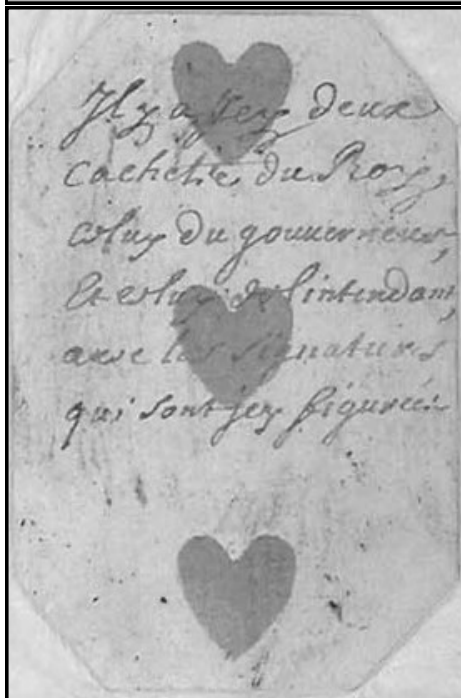 Il y a Icy deux
cachetie du Roy,
celuy du gouuerneur,
Et celuy de lintendant,
auec les signatures
qui sont jcy figurées